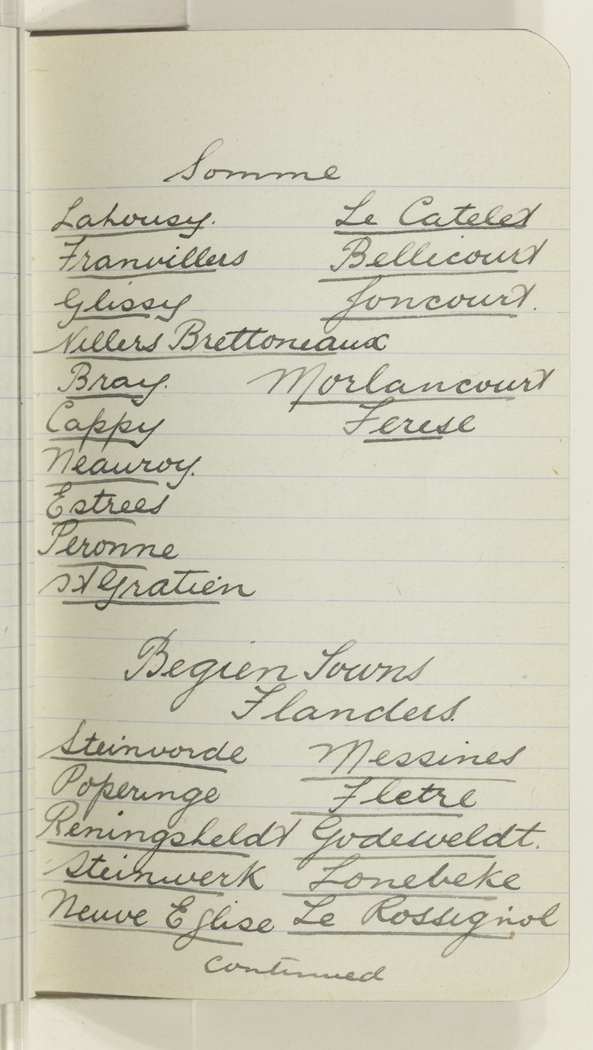 Somme
Lahousy. Le Catelet
Franvillers Bellicourt
Glissy Joncourt.
Villers Brettoneaux
Bray. Morlancourt
Cappy Ferese
Neauroy.
Estrees
Peronne
St Gratien
Begien Towns
Flanders.
Steinvorde Messines
Poperinge Fletre
Reningsheldt Godesveldt.
Steinwerk Zonebeke
Neuve Eglise Le Rossignol
continued